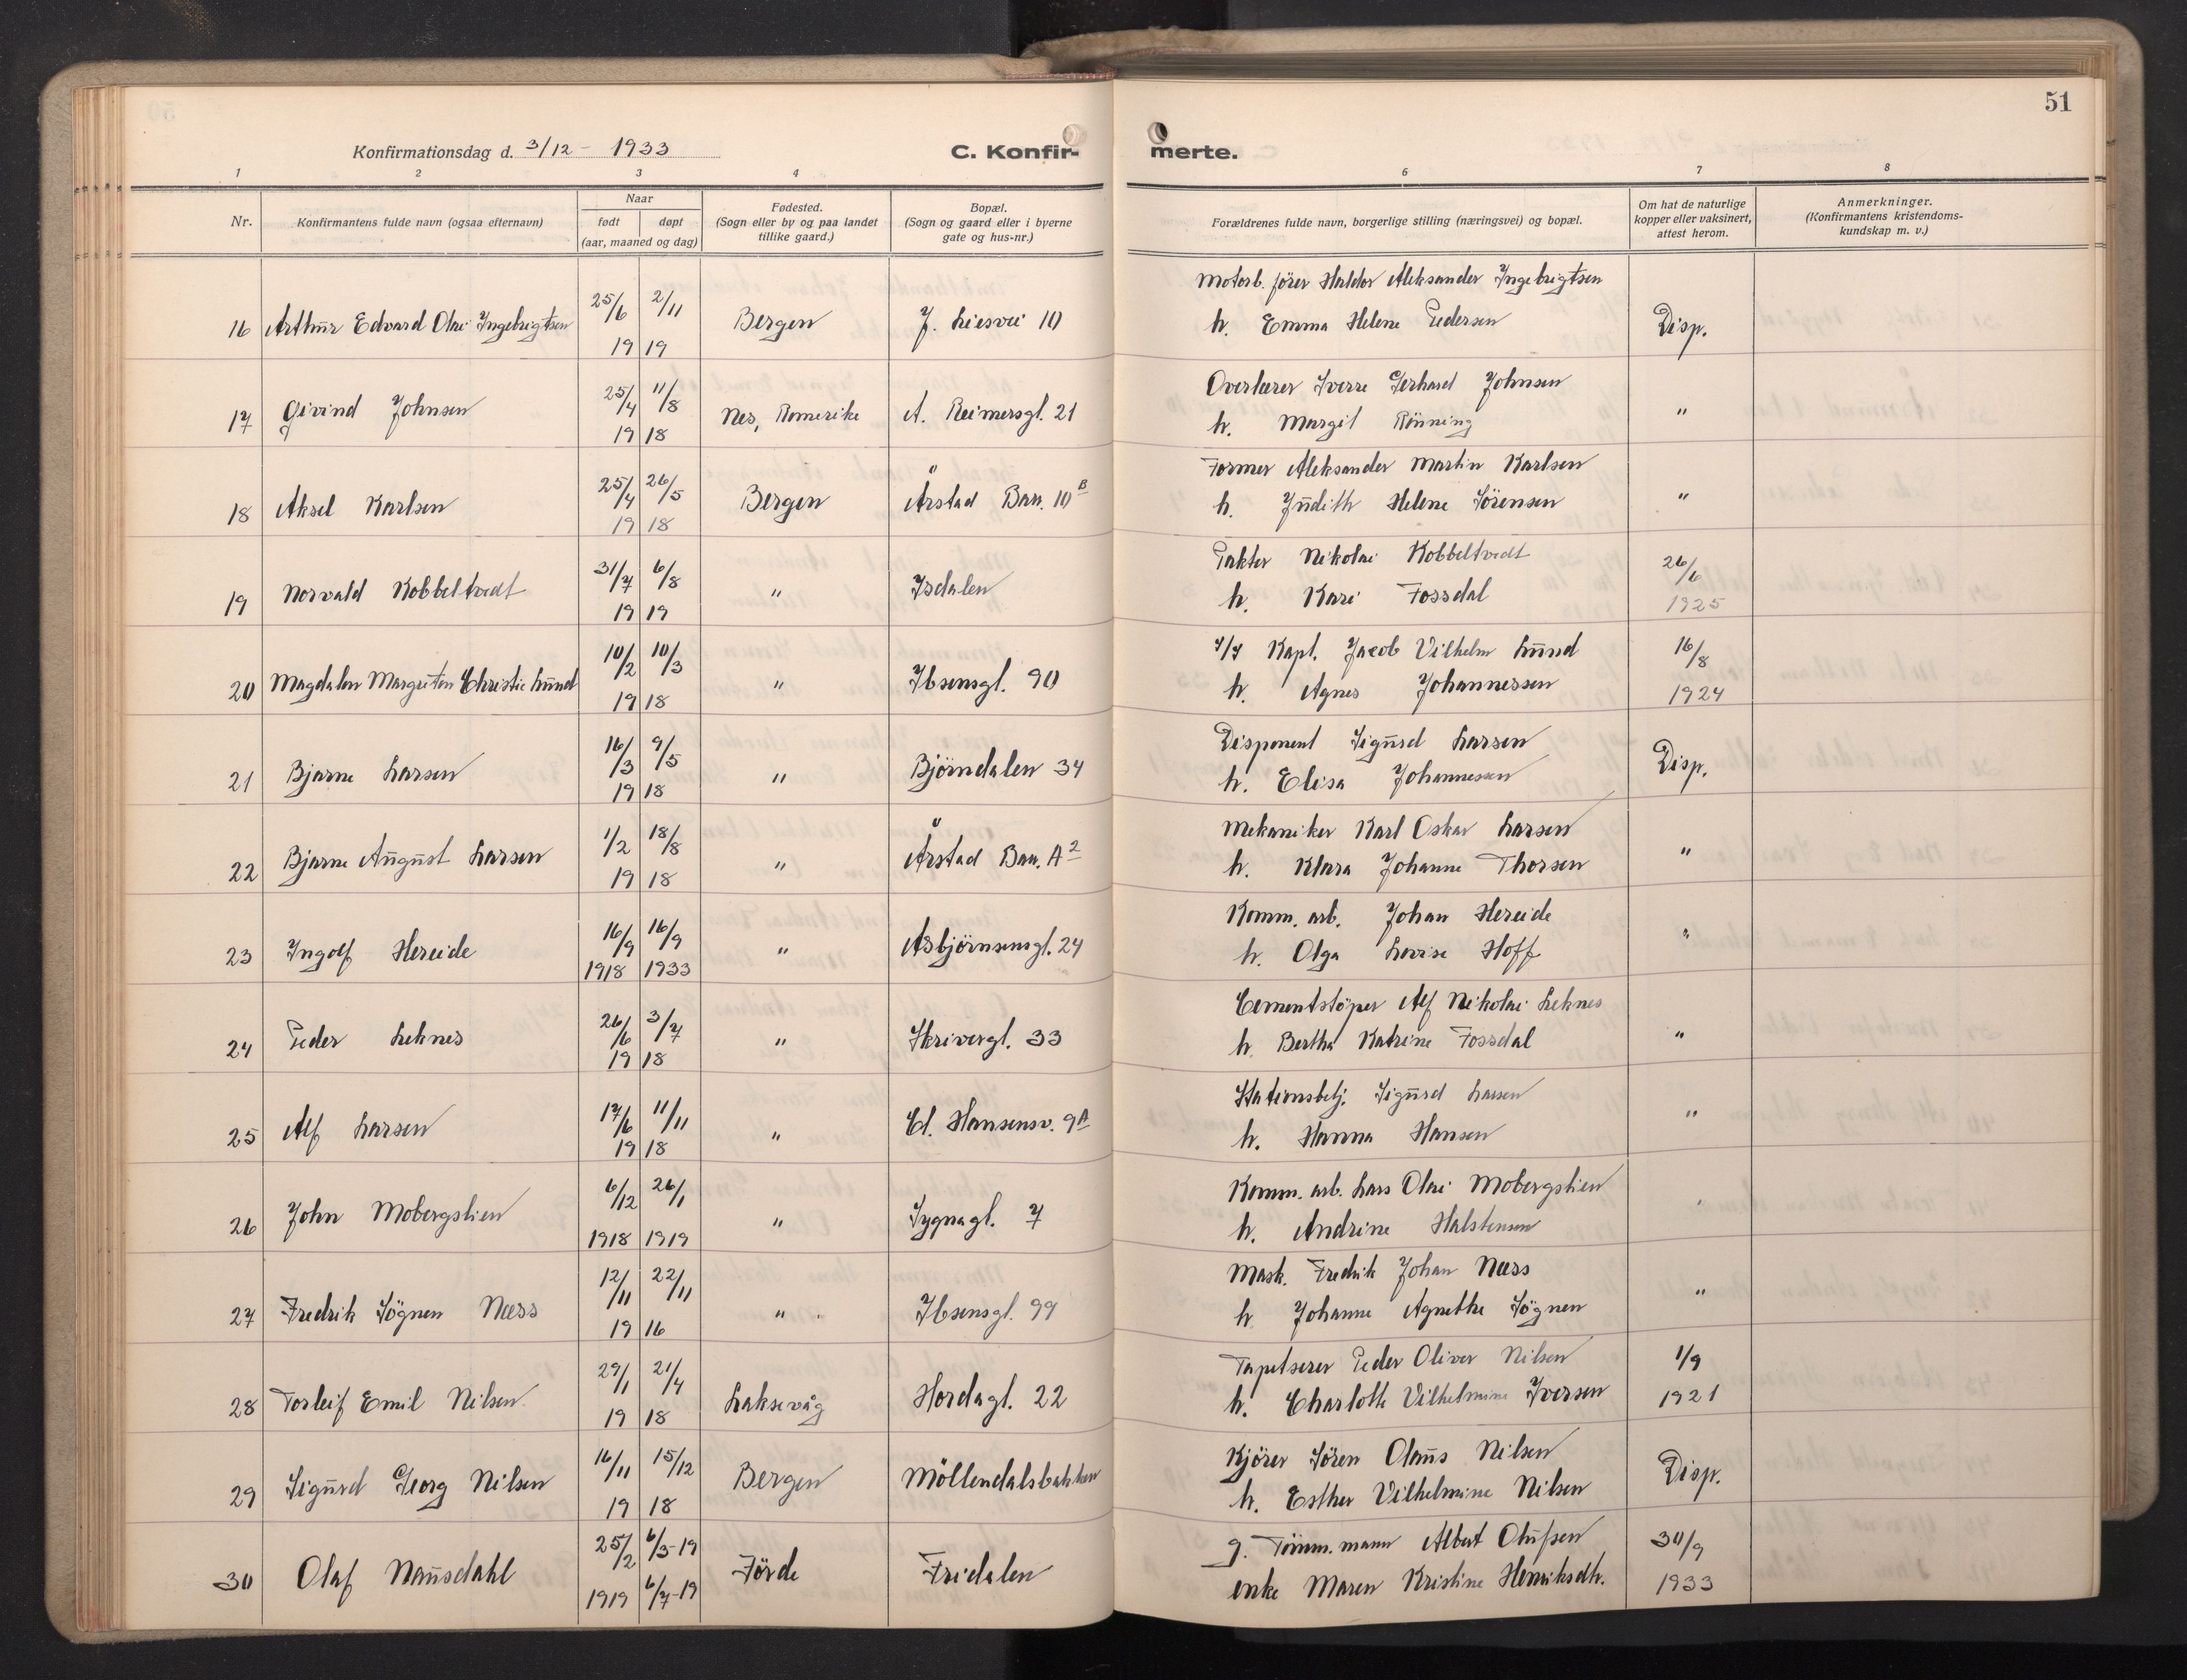 51
Konfirmationsdag d. 3/12 - 1933
C. Konfir-
merte.
1 2 3 4 6 7 8
Nr.
Konfirmantens fulde navn (ogsaa efternavn)
Naar
født døpt
(aar, maaned og dag)
Fødested.
(Sogn eller by og paa landet
tillike gaard.)
Bopæl.
(Sogn og gaard eller i byerne
gate og hus-nr.)
Forældrenes fulde navn, borgerlige stilling (næringsvei) og bopæl.
Om hat de naturlige
kopper eller vaksinert,
attest herom.
Anmerkninger.
(Konfirmantens kristendoms-
kundskap m. v.)
16 Arthur Edvard Olai Ingebrigtsen 25/6 2/11 19 19 Bergen J. Liesvei 10
Motorb. fører Haldor Aleksander Ingebrigtsen
h. Emma Helene Pedersen Disp.
17 Øivind Johnsen 25/4 11/8 19 18 Nes, Romerike A. Reimersgt. 21
Overlærer Sverre Gerhard Johnsen
h. Margit Rönning "
18 Aksel Karlsen 25/4 26/5 19 18 Bergen Årstad Brk. 10 B
Former Aleksander Martin Karlsen
h. Judith Helene Sörensen "
19 Norvald Kobbeltvedt 31/7 6/8 19 19 " Isdalen
Pakter Nikolai Kobbeltvedt
h. Kari Fossdal 26/6 1925
20 Magdalen Margreten Christie Lund 10/2 10/3 19 18 " Ibsensgt. 90
Kapt. Jacob Vilhelm Lund
h. Agnes Johannessen 16/8 1924
21 Bjarne Larsen 16/3 9/5 19 18 " Björndalen 34
Disponent Sigurd Larsen
h. Elisa Johannessen Disp.
22 Bjarne August Larsen 1/2 18/8 19 18 " Årstad Brk. A 2
Mekaniker Karl Oskar Larsen
h. Klara Johanne Thorsen "
23 Ingolf Hereide 16/9 16/9 1918 1933 " Asbjörnsensgt. 24
Komm. arb. Johan Hereide
h. Olga Lovise Hoff "
24 Peder Leknes 26/6 3/7 19 18 " Skrivergt. 33
Cementstöper Alf Nikolai Leknes
h. Bertha Katrine Fossdal "
25 Alf Larsen 17/6 11/11 19 18 " Cl. Hansensv. 9 A
Stationsbetj. Sigurd Larsen
h. Hanna Hansen "
26 John Mobergslien 6/12 26/1 1918 1919 " Sygnagt. 7
Komm. arb. Lars Olai Mobergslien
h. Andrine Halstensen "
27 Fredrik Sögnen Næss 12/11 22/11 19 16 " Ibsensgt. 99
Mask. Fredrik Johan Næss
h. Johanne Agnethe Sögnen "
28 Torleif Emil Nilsen 29/1 21/4 19 18 Laksevåg Hordagt. 22
Tapetserer Peder Oliver Nilsen
h. Charlotte Vilhelmine Iversen 1/9 1921
29 Sigurd Georg Nilsen 16/11 15/12 19 18 Bergen Möllendalsbakken
Kjörer Sören Olaus Nilsen
h. Esther Vilhelmine Nilsen Disp.
30 Olaf Nausdahl 25/2 1919 6/3-19 6/7-19 Förde Fridalen
g. Tömm. mann Albert Olufsen
enke Maren Kristine Henriksdtr. 30/9 1933